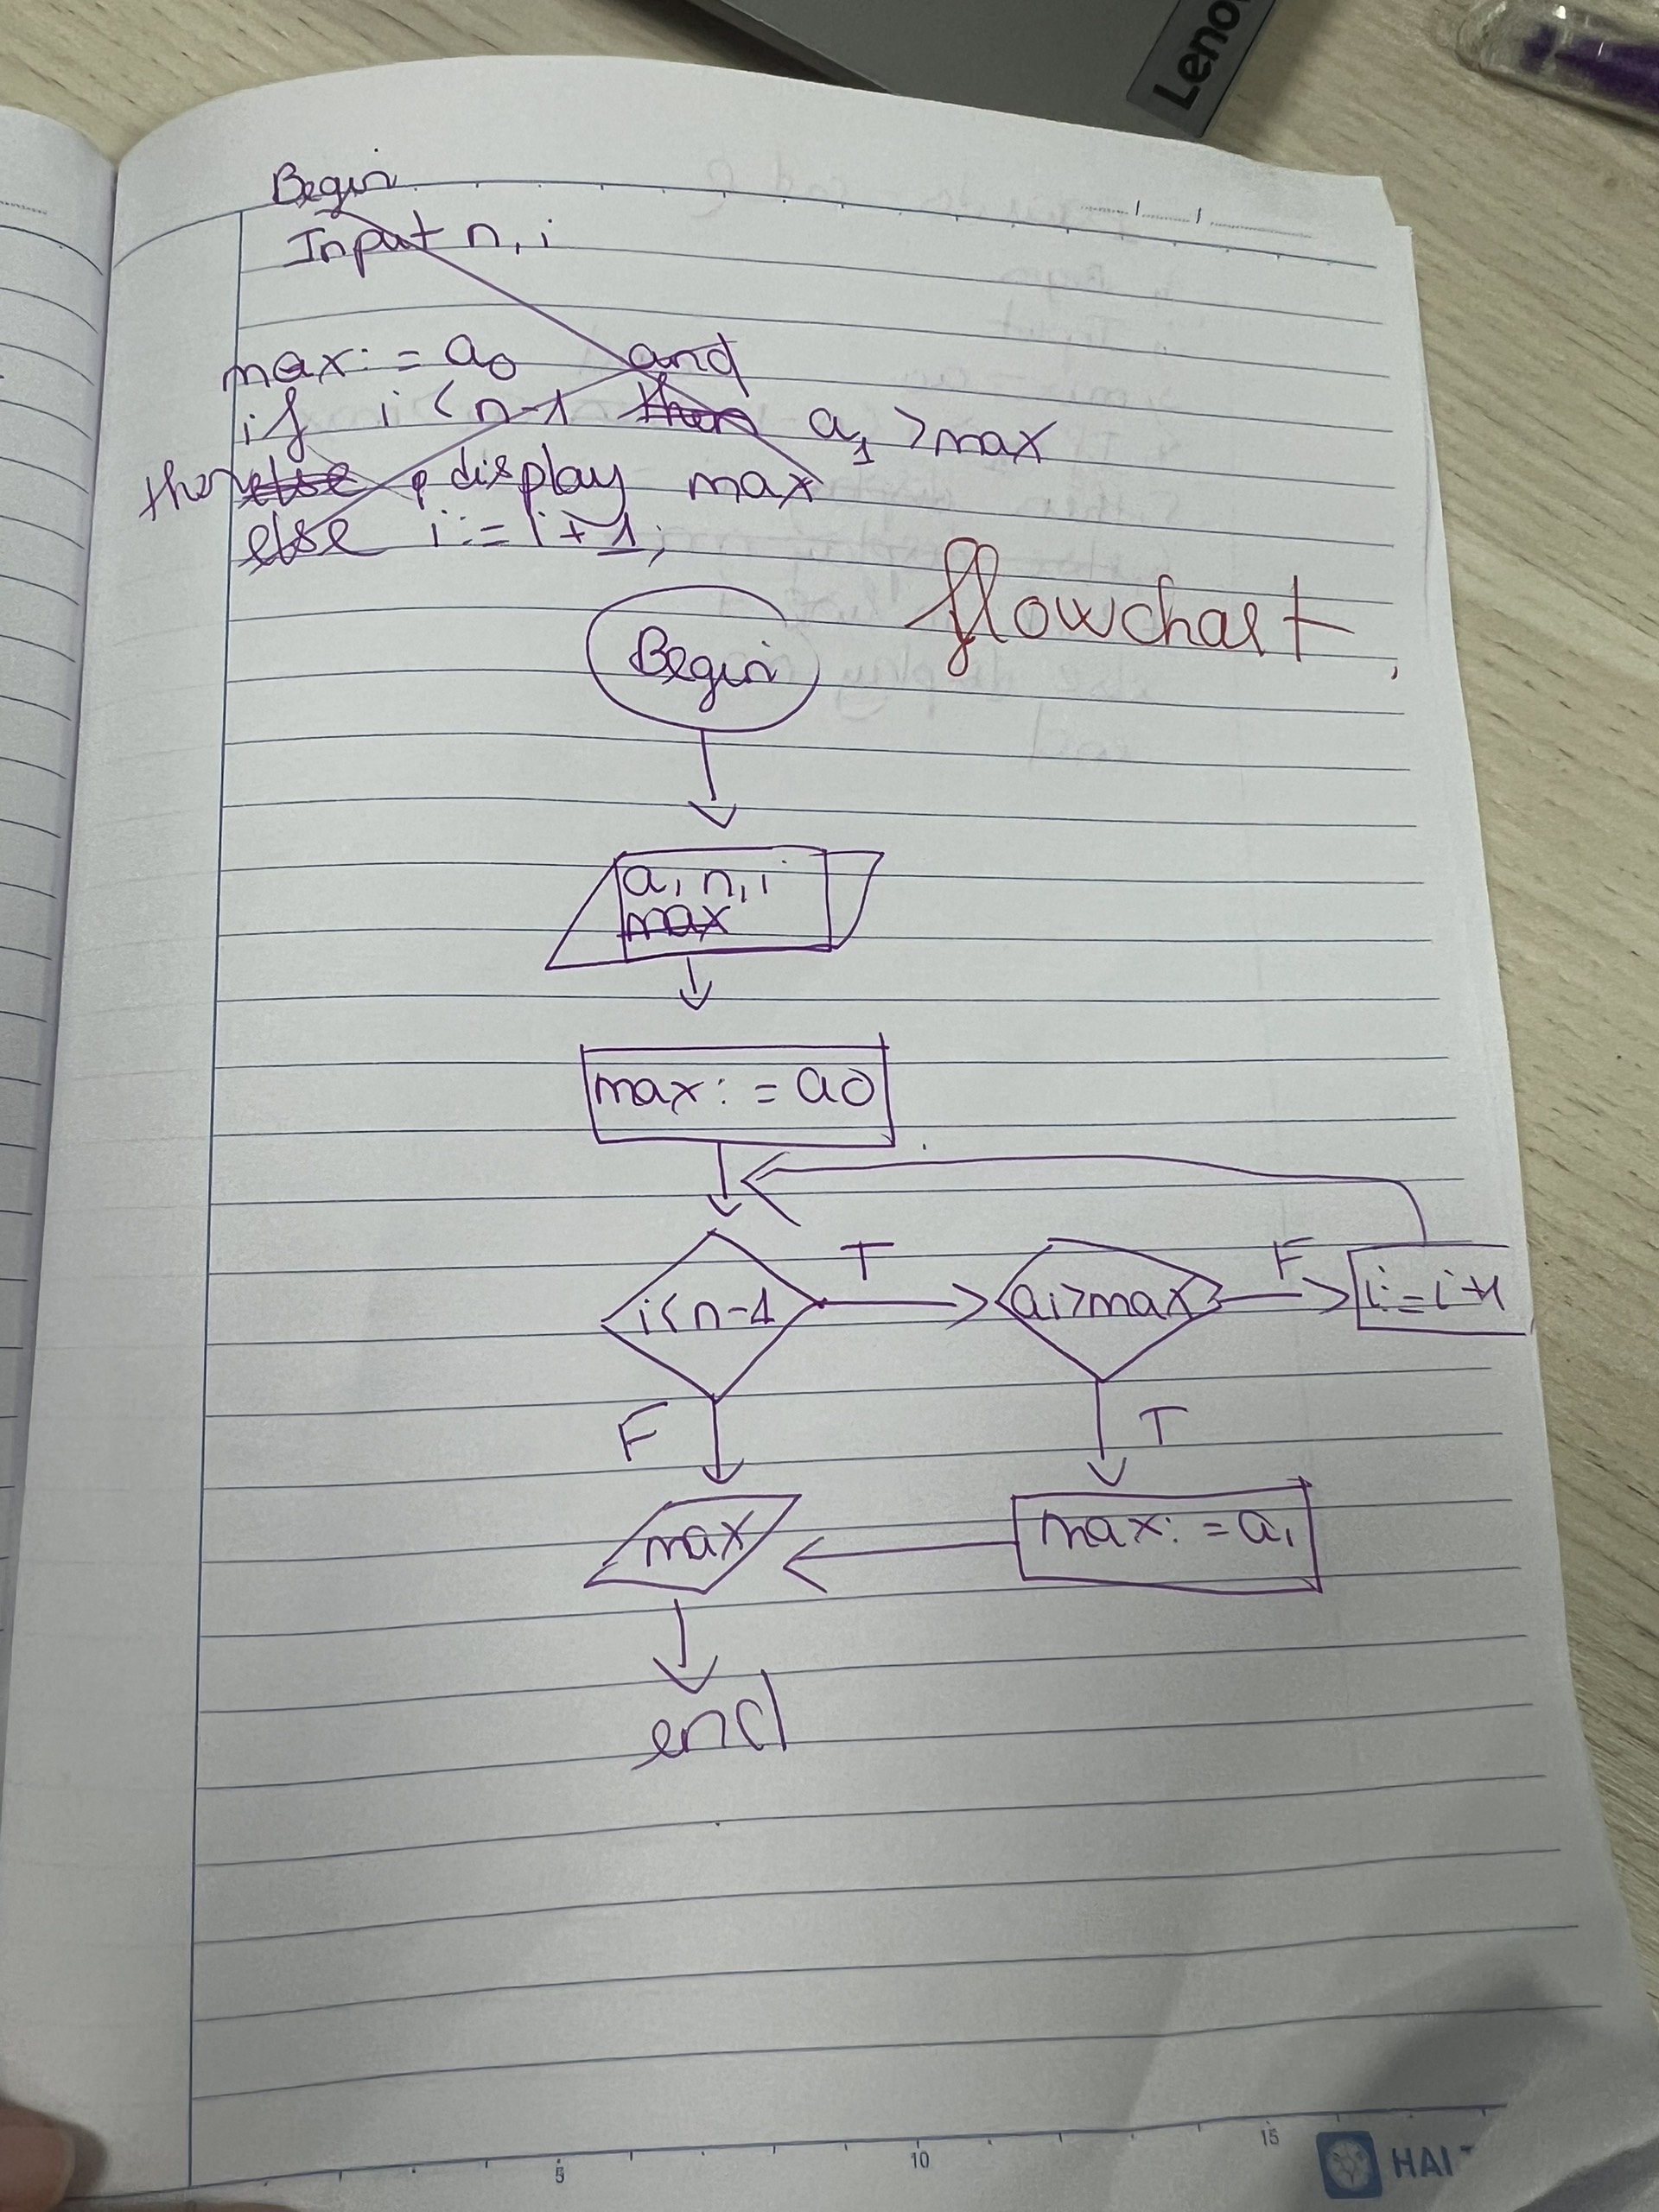 Lenov
Begin
Input n, i
max: = a0 and
if i < n-1 then a1 > max
then else display max
else i: = i + 1;
flowchart,
Begin
a, n, i
max
max: = a0
i < n-1
T
ai > max
F
i: = i+1
F
T
max
max: = ai
end
5
10
15
HAI